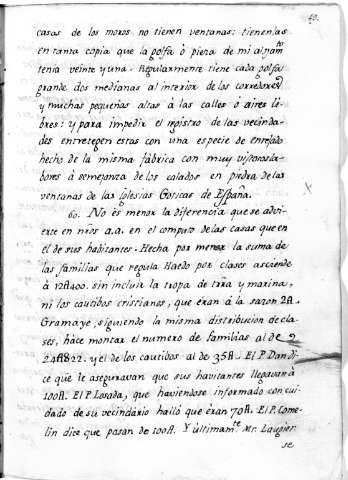 40.
casas de los moros no tienen ventanas: tienenlas
en tanta copia que la golfa ò pieza de mi alojam.to
tenia veinte y una. Regularmente tiene cada golfa
grande dos medianas al interior de los corredores,
y muchas pequeñas altas à las calles ò aires li-
bres: y para impedir el registro de las vecinda-
des entretegen estas con una especie de enrejado
hecho de la misma fábrica con muy vistosas la-
bores à semejanza de los calados en piedra de las
ventanas de las Iglesias Goticas de España.
60. No es menor la diferencia que se advi-
erte en nros a.a. en el computo de las casas que en
el de sus habitantes. Hecha por menor la suma de
las familias que regula Haedo por clases asciende
à 12A400. sin incluir la tropa de trra y marina,
ni los cautibos cristianos, que èran á la sazon 2A.
Gramaye, siguiendo la misma distribucion de cla-
ses, hàce montar el numero de familias al de
24A822. y el de los cautibos al de 35A. El P. Dan di-
ce que le aseguravan que sus havitantes llegavan à
100A. El P. Losada, que haviendose informado con cui-
dado de su vecindario hallò que èran 70A. El P. Come-
lin dice que pasan de 100A. Y ùltimam.te Mr. Laugier
se